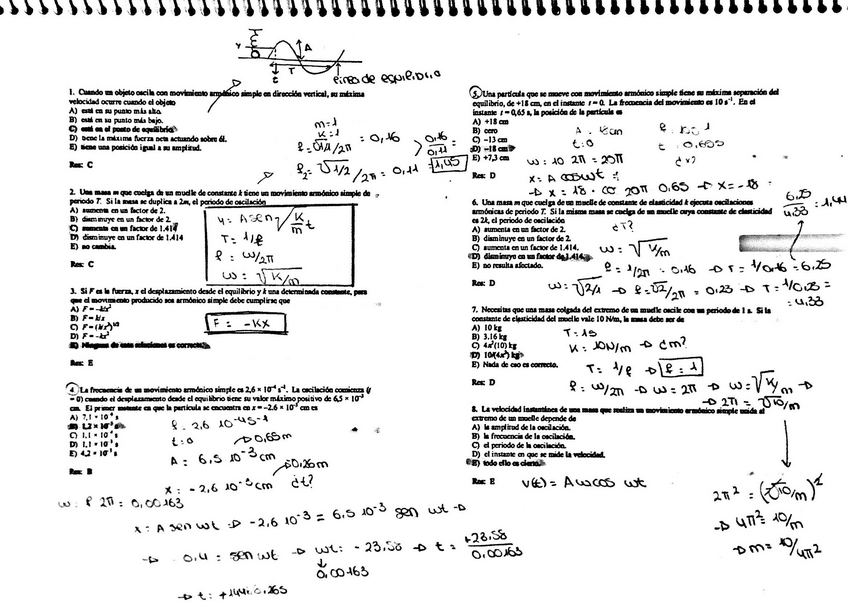 Y
A
T
t
línea de equilibrio
1. Cuando un objeto oscila con movimiento armónico simple en dirección vertical, su máxima
velocidad ocurre cuando el objeto
A) está en su punto más alto.
B) está en su punto más bajo.
C) está en el punto de equilibrio.
D) tiene la máxima fuerza neta actuando sobre él.
E) tiene una posición igual a su amplitud.
Res: C
m=1
K=1
f=√1/1/2π = 0,16
f₂=√1/2/2π = 0,11
0,16/0,11 = 1,45
2. Una masa m que cuelga de un muelle de constante k tiene un movimiento armónico simple de
periodo T. Si la masa se duplica a 2m, el periodo de oscilación
A) aumenta en un factor de 2.
B) disminuye en un factor de 2.
C) aumenta en un factor de 1.414
D) disminuye en un factor de 1.414
E) no cambia.
Res: C
y = A sen √K/m t
T = 1/f
f = w/2π
w = √K/m
3. Si F es la fuerza, x el desplazamiento desde el equilibrio y k una determinada constante, para
que el movimiento producido sea armónico simple debe cumplirse que
A) F = -kx²
B) F = kx
C) F = (kx²)¹/²
D) F = -kx²
E) Ninguna de estas relaciones es correcta.
F = -Kx
Res: E
4. La frecuencia de un movimiento armónico simple es 2,6 × 10⁻⁴ s⁻¹. La oscilación comienza (t
= 0) cuando el desplazamiento desde el equilibrio tiene su valor máximo positivo de 6,5 × 10⁻³
cm. El primer instante en que la partícula se encuentra en x = −2.6 × 10⁻³ cm es
Res: B
f = 2,6 10⁻⁴ s⁻¹
t=0
A = 6,5 10⁻³ cm
x = -2,6 10⁻³ cm
¿t?
w = f 2π = 0,00163
x = A sen wt → -2,6 10⁻³ = 6,5 10⁻³ sen wt →
→ -0,4 = sen wt → wt = -23,58 → t = +23,58/0,00163
0,00163
5. Una partícula que se mueve con movimiento armónico simple tiene su máxima separación del
equilibrio, de +18 cm, en el instante t = 0. La frecuencia del movimiento es 10 s⁻¹. En el
instante t = 0,65 s, la posición de la partícula es
A) +18 cm
B) cero
C) −13 cm
D) −18 cm
E) +7,3 cm
Res: D
t=0
t = 0,65s
¿x?
w = 10 2π = 20π
x = A cos wt =
→ x = 18 · cos 20π 0,65 → x = -18
6. Una masa m que cuelga de un muelle de constante de elasticidad k ejecuta oscilaciones
armónicas de periodo T. Si la misma masa se cuelga de un muelle cuya constante de elasticidad
es 2k, el periodo de oscilación
A) aumenta en un factor de 2.
B) disminuye en un factor de 2.
C) aumenta en un factor de 1.414.
D) disminuye en un factor de 1.414.
E) no resulta afectado.
Res: D
¿T?
w = √K/m
f = 1/2π = 0,16 → T = 1/0,16 = 6,25
w = √2/1 → f = √2/2π = 0,23 → T = 1/0,23 =
= 4,33
6,25/4,33 = 1,44
7. Necesitas que una masa colgada del extremo de un muelle oscile con un periodo de 1 s. Si la
constante de elasticidad del muelle vale 10 N/m, la masa debe ser de
A) 10 kg
B) 3.16 kg
C) 4π²(10) kg
D) 10/(4π²) kg
E) Nada de eso es correcto.
Res: D
T = 1s
K = 10N/m → ¿m?
T = 1/f → f = 1
f = w/2π → w = 2π → w = √K/m →
→ 2π = √10/m
2π² = (√10/m)²
→ 4π² = 10/m
→ m = 10/4π²
8. La velocidad instantánea de una masa que realiza un movimiento armónico simple unida al
extremo de un muelle depende de
A) la amplitud de la oscilación.
B) la frecuencia de la oscilación.
C) el periodo de la oscilación.
D) el instante en que se mide la velocidad.
E) todo ello es cierto.
Res: E
v(t) = A w cos wt